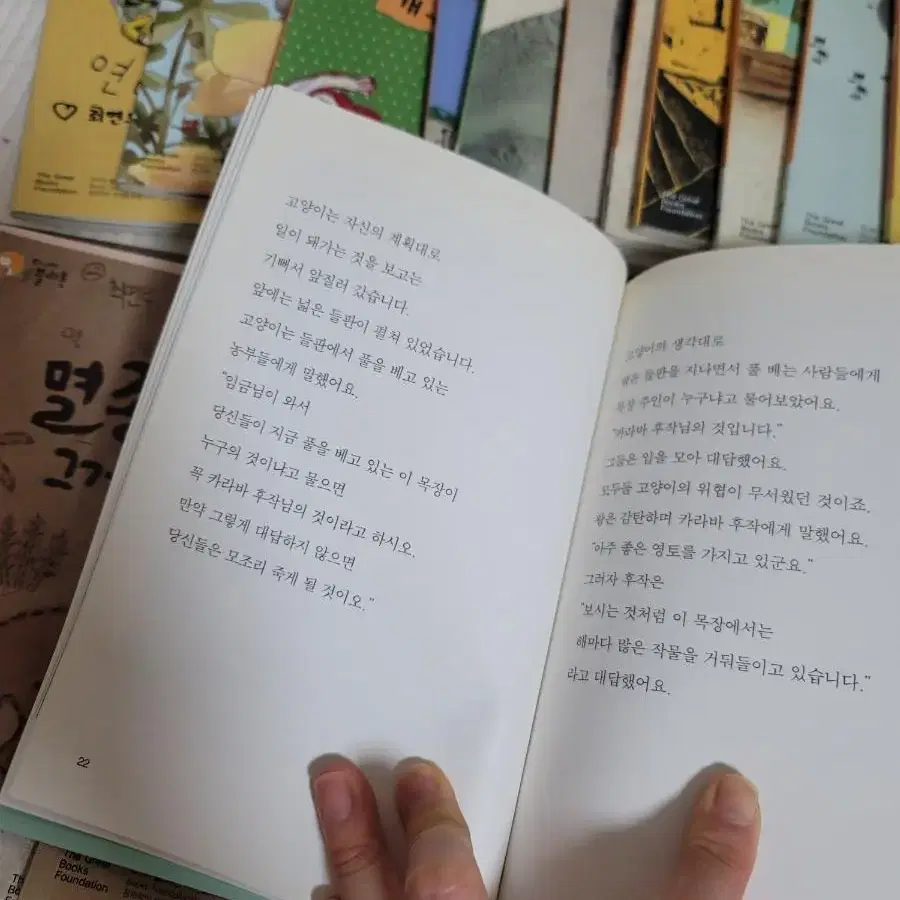 연
♡ 최연
The Great
Books
Foundation
The Great
Books
Foundation
The Great
Books
Foundation
The Great
Books
Foundation
The Great
Books
Foundation
멸
멸종
그
고양이는 자신의 계획대로
일이 돼가는 것을 보고는
기뻐서 앞질러 갔습니다.
앞에는 넓은 들판이 펼쳐 있었습니다.
고양이는 들판에서 풀을 베고 있는
농부들에게 말했어요.
"임금님이 와서
당신들이 지금 풀을 베고 있는 이 목장이
누구의 것이냐고 물으면
꼭 카라바 후작님의 것이라고 하시오.
만약 그렇게 대답하지 않으면
당신들은 모조리 죽게 될 것이오."
22
고양이의 생각대로
왕은 들판을 지나면서 풀 베는 사람들에게
목장 주인이 누구냐고 물어보았어요.
"카라바 후작님의 것입니다."
그들은 입을 모아 대답했어요.
모두들 고양이의 위협이 무서웠던 것이죠.
왕은 감탄하며 카라바 후작에게 말했어요.
"아주 좋은 영토를 가지고 있군요."
그러자 후작은
"보시는 것처럼 이 목장에서는
해마다 많은 작물을 거둬들이고 있습니다."
라고 대답했어요.
The Great
Books
Foundation